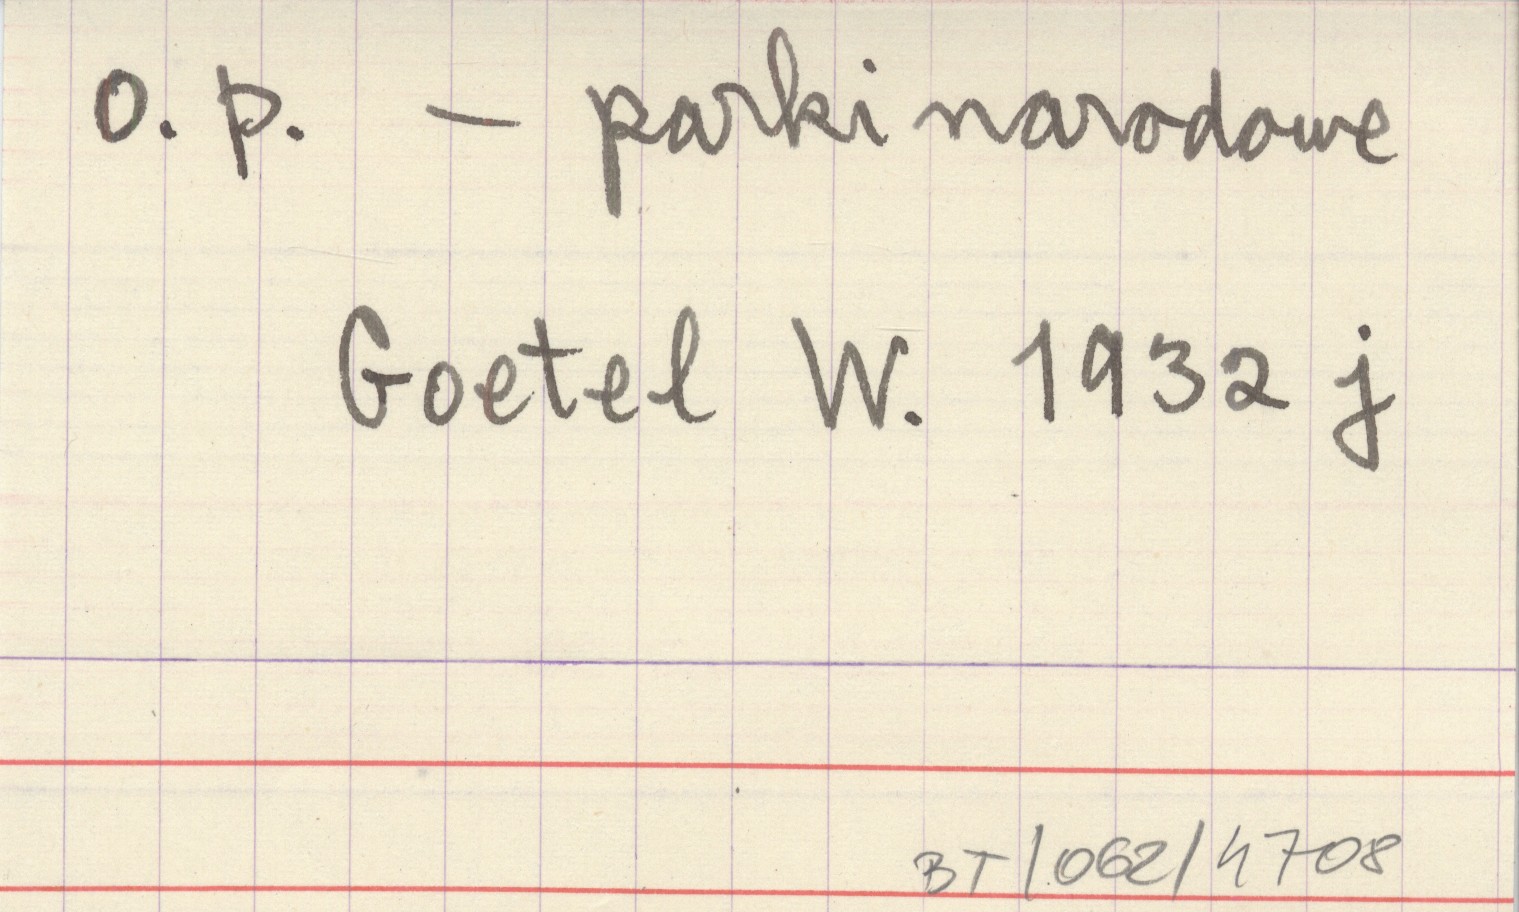 o. p. - parki narodowe
Goetel W. 1932 j
BT/062/4708